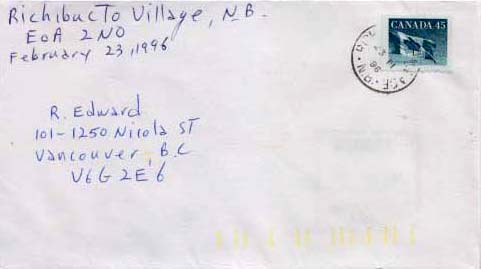 Richibucto Village, N.B.
EoA 2N0
February 23, 1996
CANADA 45
R. Edward
101-1250 Nicola ST
Vancouver, B.C
V6G2E6